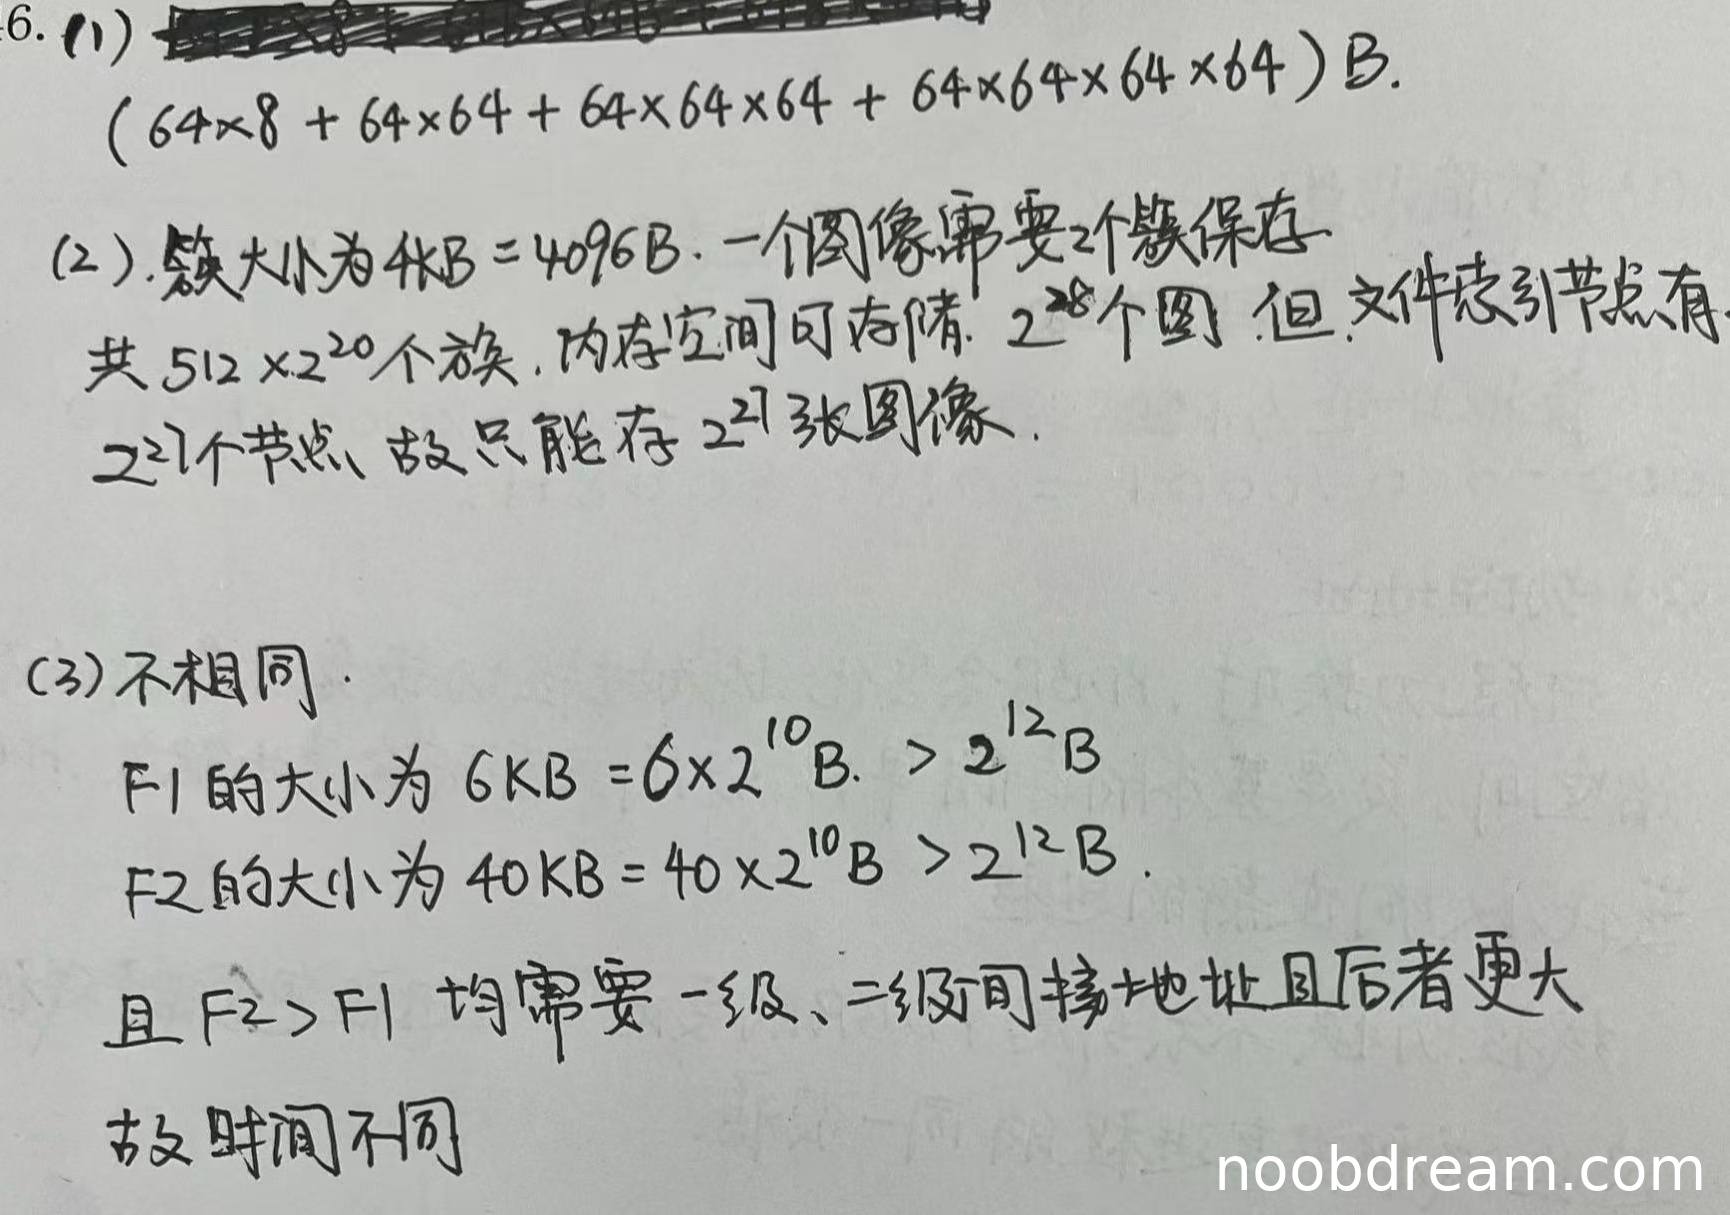 6. (1)
(64×8 + 64×64 + 64×64×64 + 64×64×64×64) B.
(2). 簇大小为4KB = 4096B. 一个图像需要2个簇保存
共 512×2²⁰个族. 内存空间可存储. 2²⁸个图. 但.文件索引节点有.
2²⁷个节点、故只能存 2²⁷张图像.
(3) 不相同.
F1 的大小为 6KB = 6×2¹⁰B. > 2¹²B
F2 的大小为 40KB = 40×2¹⁰B > 2¹²B.
且 F2 > F1 均需要一级、二级间接地址且后者更大
故时间不同
noobdream.com